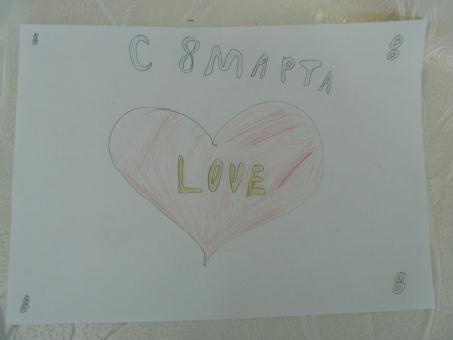 8 8
С 8 МАРТА
LOVE
8 8